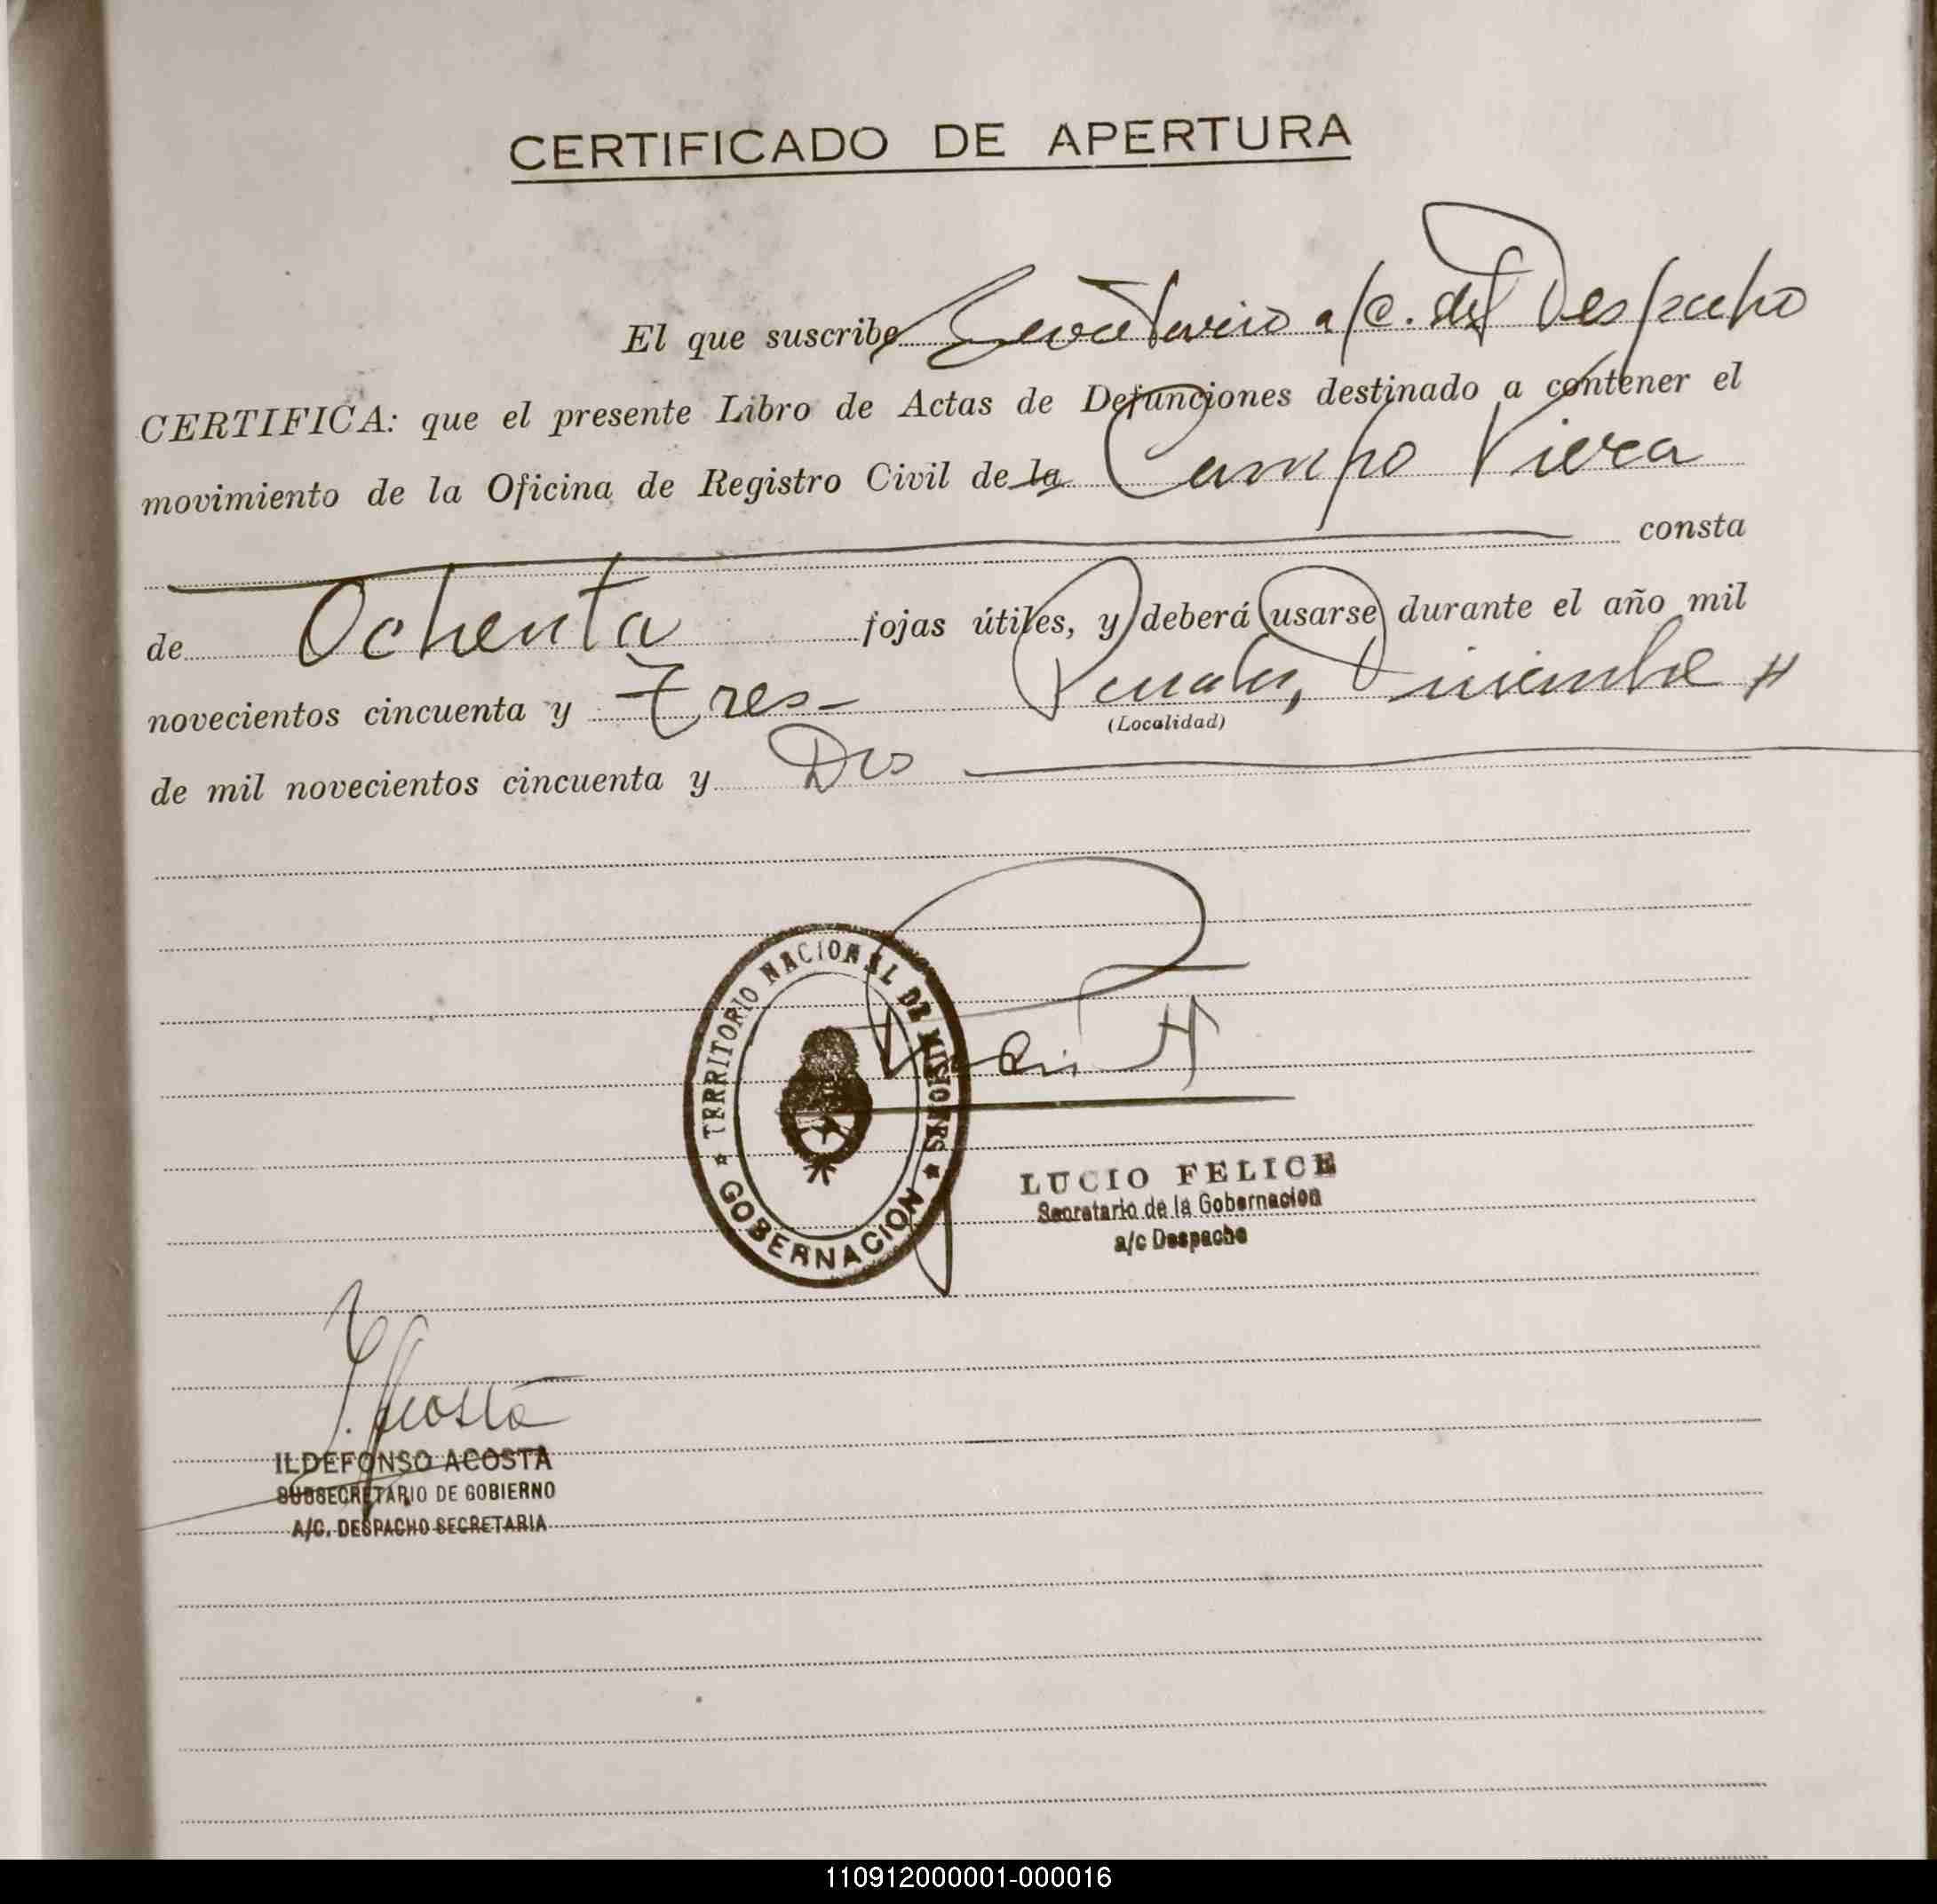 CERTIFICADO DE APERTURA
El que suscribe Secretario a/c. del Despacho
CERTIFICA: que el presente Libro de Actas de Defunciones destinado a contener el
movimiento de la Oficina de Registro Civil de la Campo Viera
consta
de Ochenta fojas útiles, y deberá usarse durante el año mil
novecientos cincuenta y Tres- Posadas, Diciembre
(Localidad)
de mil novecientos cincuenta y Dos
TERRITORIO NACIONAL DE MISIONES
GOBERNACION
LUCIO FELICE
Secretario de la Gobernacion
a/c Despacho
I. Acosta
ILDEFONSO ACOSTA
SUBSECRETARIO DE GOBIERNO
A/C. DESPACHO SECRETARIA
110912000001-000016